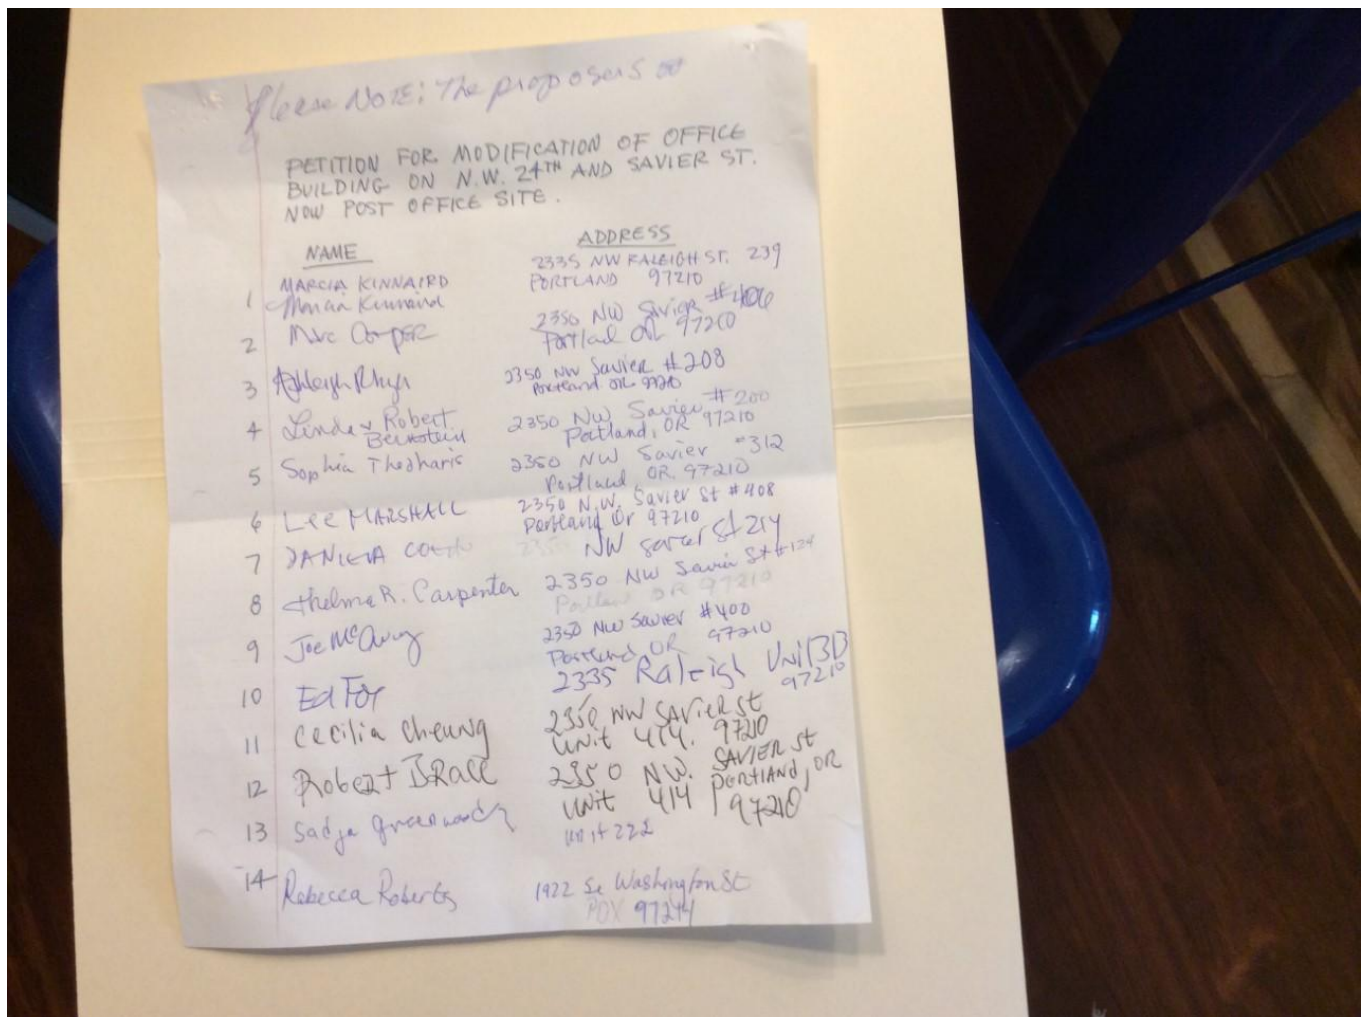 Please NOTE: The proposers
PETITION FOR MODIFICATION OF OFFICE
BUILDING ON N.W. 24TH AND SAVIER ST.
NOW POST OFFICE SITE.
NAME ADDRESS
MARCIA KINNAIRD 2335 NW RALEIGH ST. 239
1 Marcia Kinnaird PORTLAND 97210
2 2350 NW Savier #406
Portlad OR 97210
3 Ashleigh 2350 NW Savier #208
Portland OR 97210
4 Linda & Robert 2350 NW Savier #200
Bernstein Portland, OR 97210
5 Sophia Theoharis 2350 NW Savier #312
Portland OR. 97210
6 Lee MARSHALL 2350 N.W. Savier St #408
Portland Or 97210
7 2350 NW st 214
8 Thelma R. Carpenter 2350 NW Savier St #124
Portland OR 97210
9 Joe 2350 NW Savier #400
Portland, OR 97210
10 Ed Fox 2335 Raleigh Unit 3B
97210
11 Cecilia Cheung 2350 NW SAVIER St
Unit 414. 97210
12 Robert 2350 N.W. SAVIER St
Unit 414 PORTLAND, OR
97210
13 Sadja unit 222
14 Rebecca Roberts 1922 Se Washington St
PDX 97214